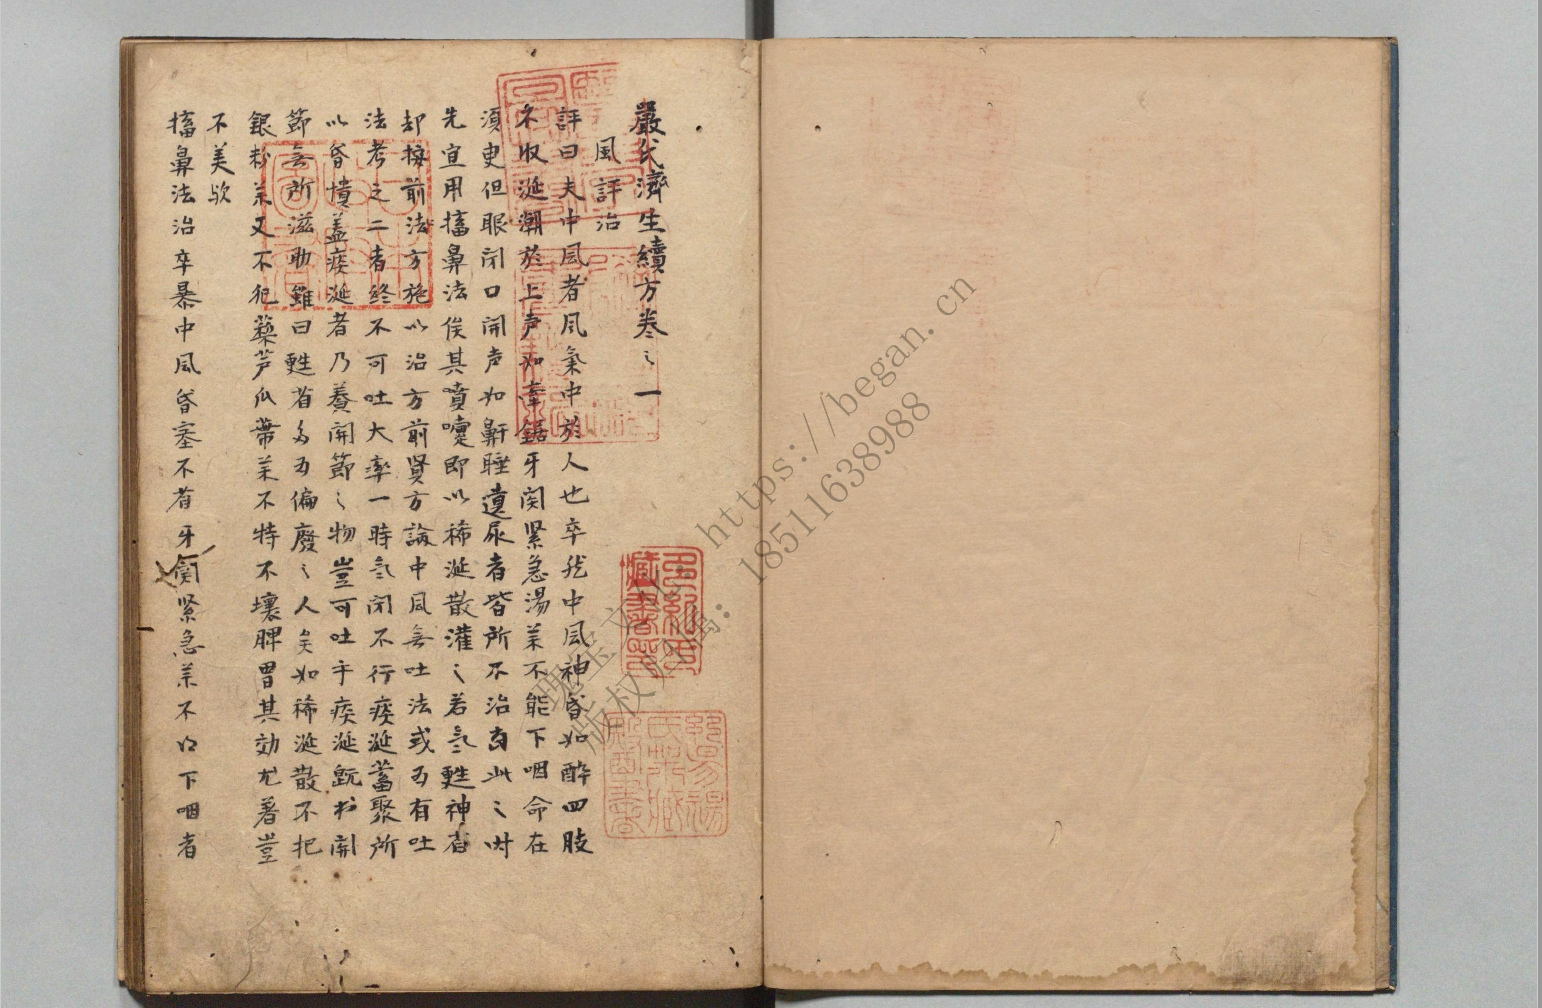 嚴氏濟生續方卷之一
風評治
評曰夫中風者風氣中於人也卒然中風神昏如醉四肢
不収涎潮於上声如牽鋸牙関緊急湯薬不能下咽命在
須臾但眼閉口開声如鼾睡遺尿者皆所不治有此之時
先宜用搐鼻法俟其噴嚏即以稀涎散灌之若気甦神省
却按前法方施以治方前賢方論中風無吐法或為有吐
法考之二者終不可吐大率一時気閉不行痰涎蓄聚所
以昏憒蓋痰涎者乃養関節之物豈可吐乎痰涎既於関
節無所滋助雖曰甦省多為偏廢之人矣如稀涎散不犯
銀粉薬又不犯藜芦瓜蒂薬不特不壞脾胃其効尤著豈
不美歟
搐鼻法治卒暴中風昏塞不省牙関緊急薬不得下咽者
多紀氏
藏書印
https://began.cn
18511638988